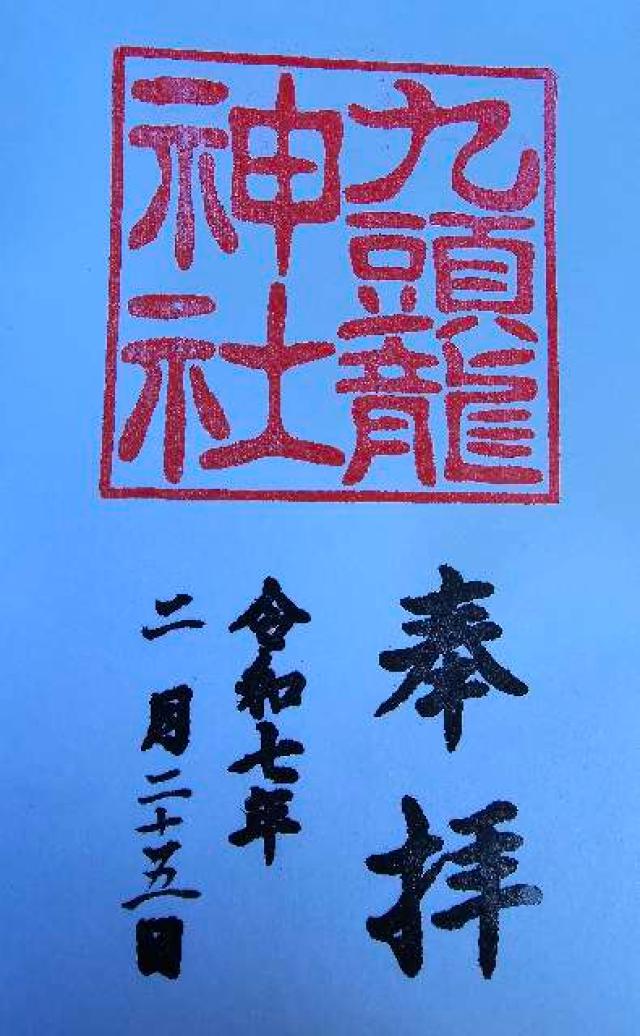 九頭龍
神社
奉拝
令和七年
二月二十五日